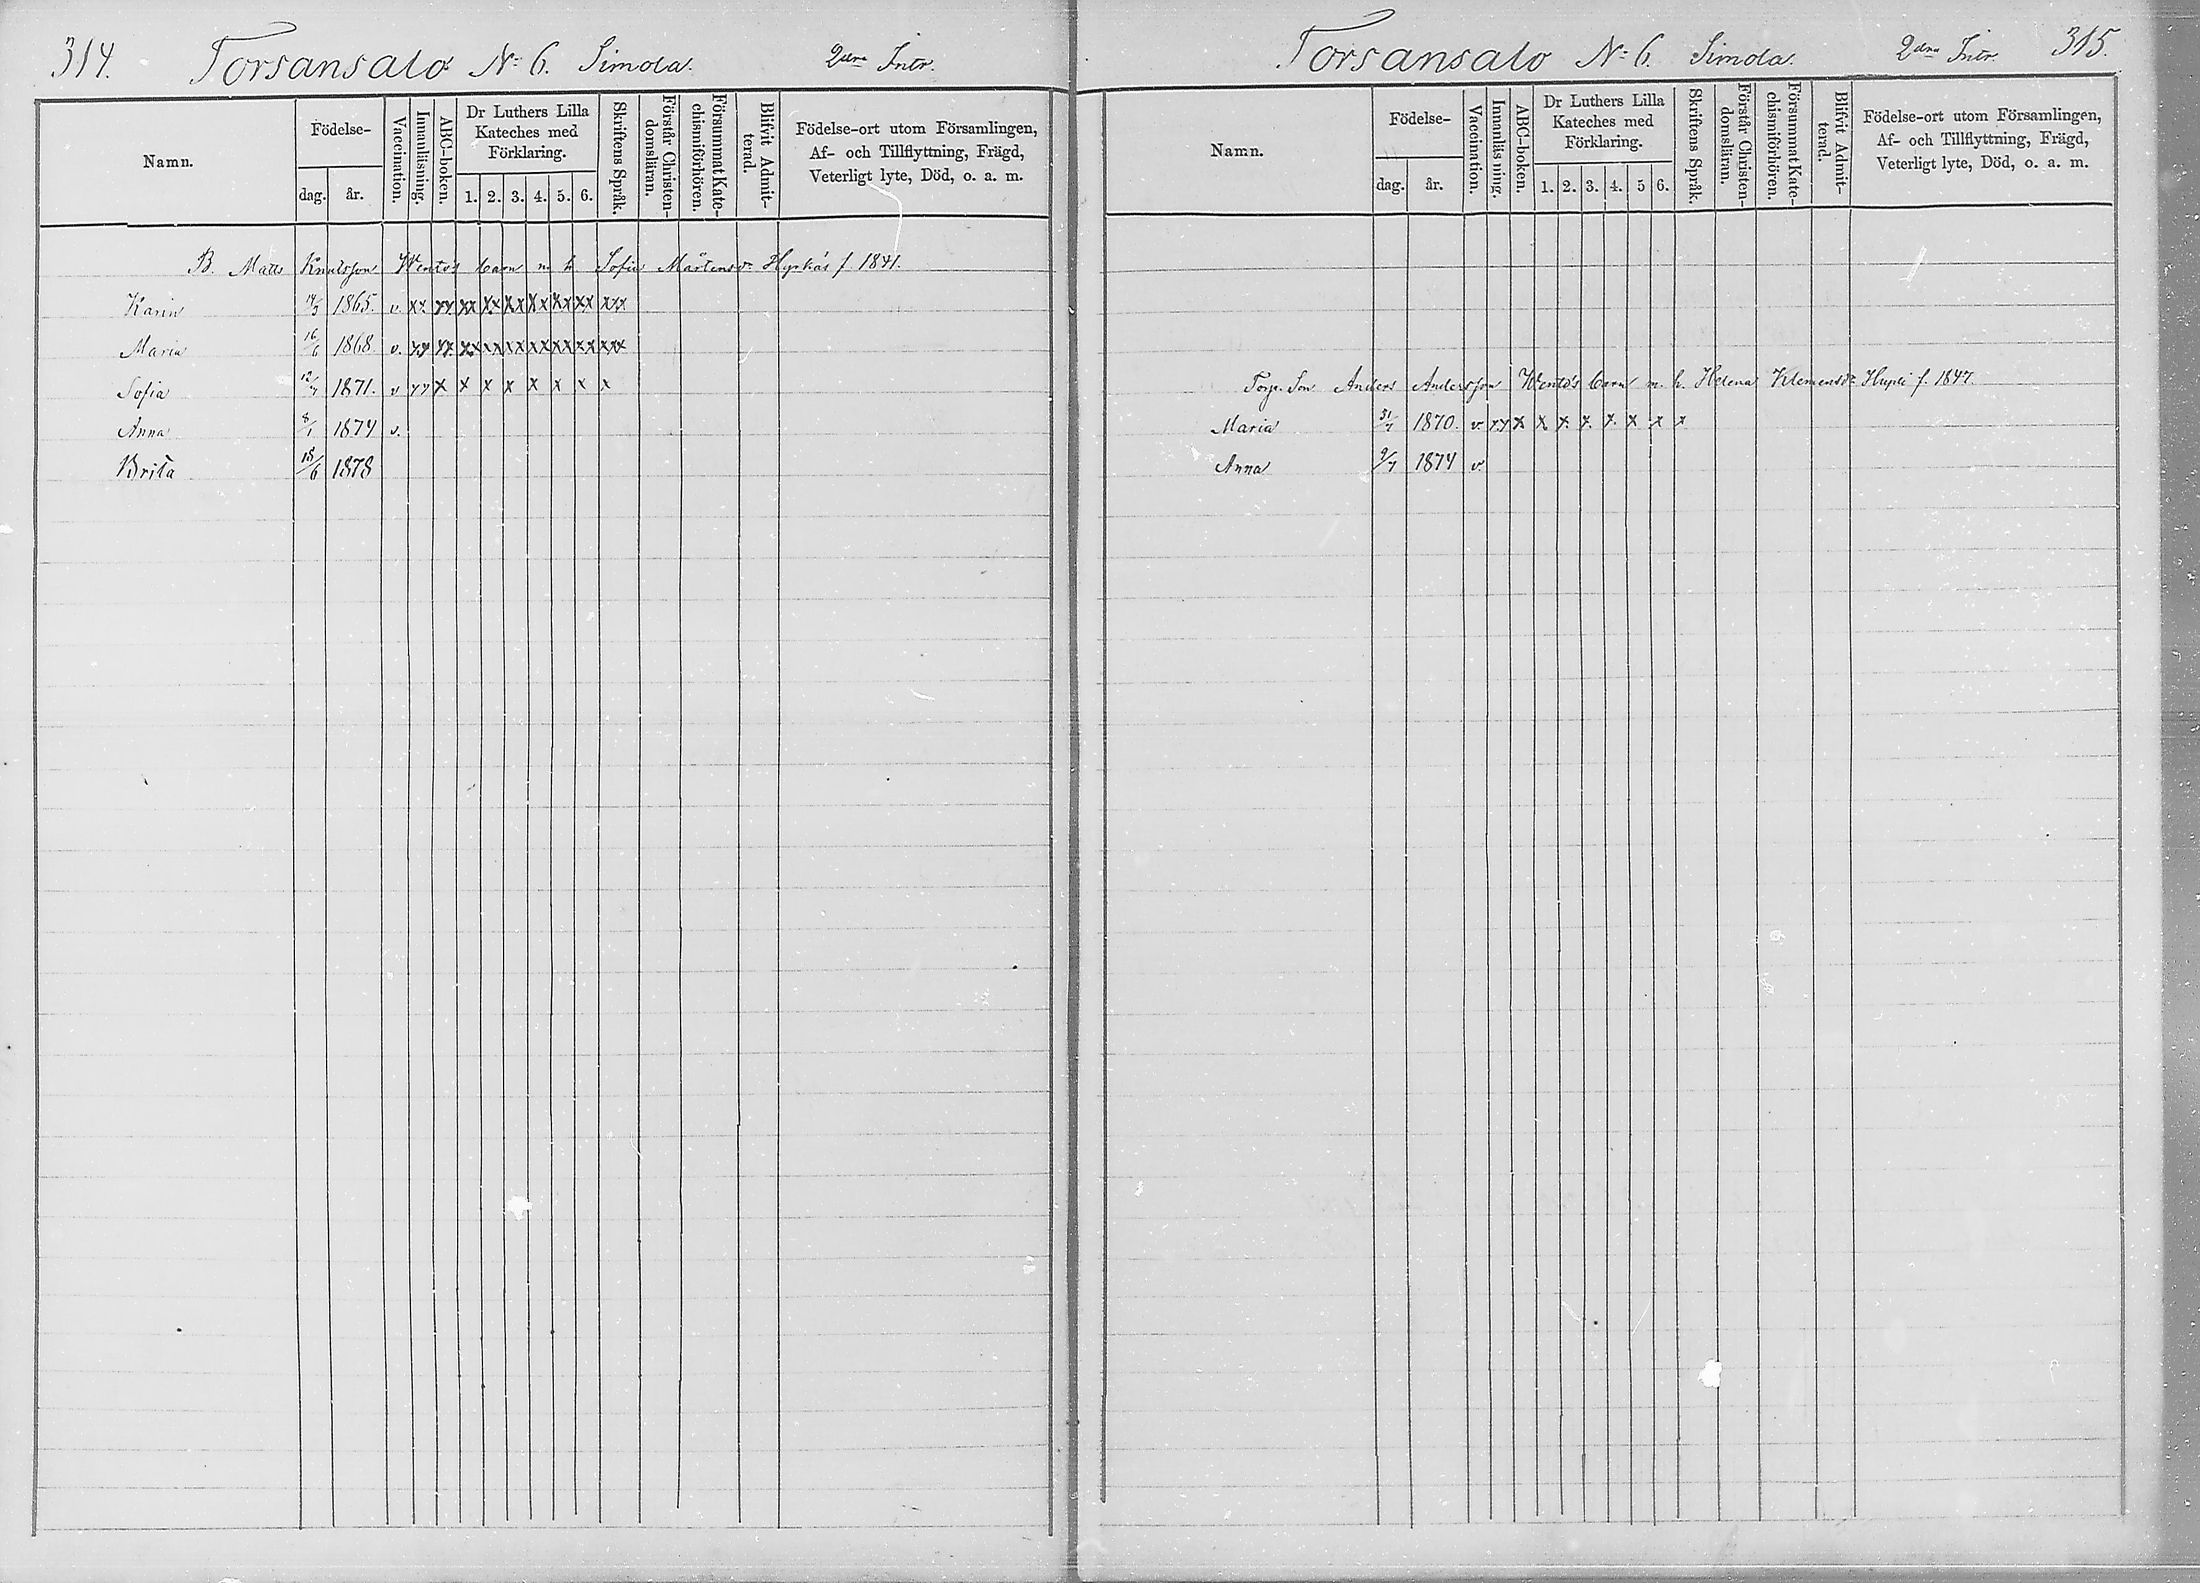 314. Torsansalo No 6. Simola. 2dra Intr.
Namn.
Födelse-
dag. år.
Vaccination.
Innanläsning.
ABC-boken.
Dr Luthers Lilla
Kateches med
Förklaring.
1. 2. 3. 4. 5. 6.
Skriftens Språk.
Förstår Christen-
domsläran.
Försummat Kate-
chismiförhören.
Blifvit Admit-
terad.
Födelse-ort utom Församlingen,
Af- och Tillflyttning, Frägd,
Veterligt lyte, Död, o. a. m.
B. Matts Knutsson Wento's barn m. h. Sofia Mårtensdr Hyrkäs f. 1841.
Karin 1865. v. xx xx xx xx xx xx xx xx xxx
Maria 16/6 1868 v. xx xx xx xx xx xx xx xx xxx
Sofia 12/7 1871. v xx x x x x x x x x
Anna 8/1 1874 v.
Brita 18/6 1878
Torsansalo No 6. Simola. 2dra Intr. 315.
Namn.
Födelse-
dag. år.
Vaccination.
Innanläsning.
ABC-boken.
Dr Luthers Lilla
Kateches med
Förklaring.
1. 2. 3. 4. 5 6.
Skriftens Språk.
Förstår Christen-
domsläran.
Försummat Kate-
chismiförhören.
Blifvit Admit-
terad.
Födelse-ort utom Församlingen,
Af- och Tillflyttning, Frägd,
Veterligt lyte, Död, o. a. m.
Son Anders Andersson Wento's barn m. h. Helena Klemensdr Hupli f. 1847
Maria 31/7 1870. v. xx x x x x x x x x
Anna 9/7 1874 v